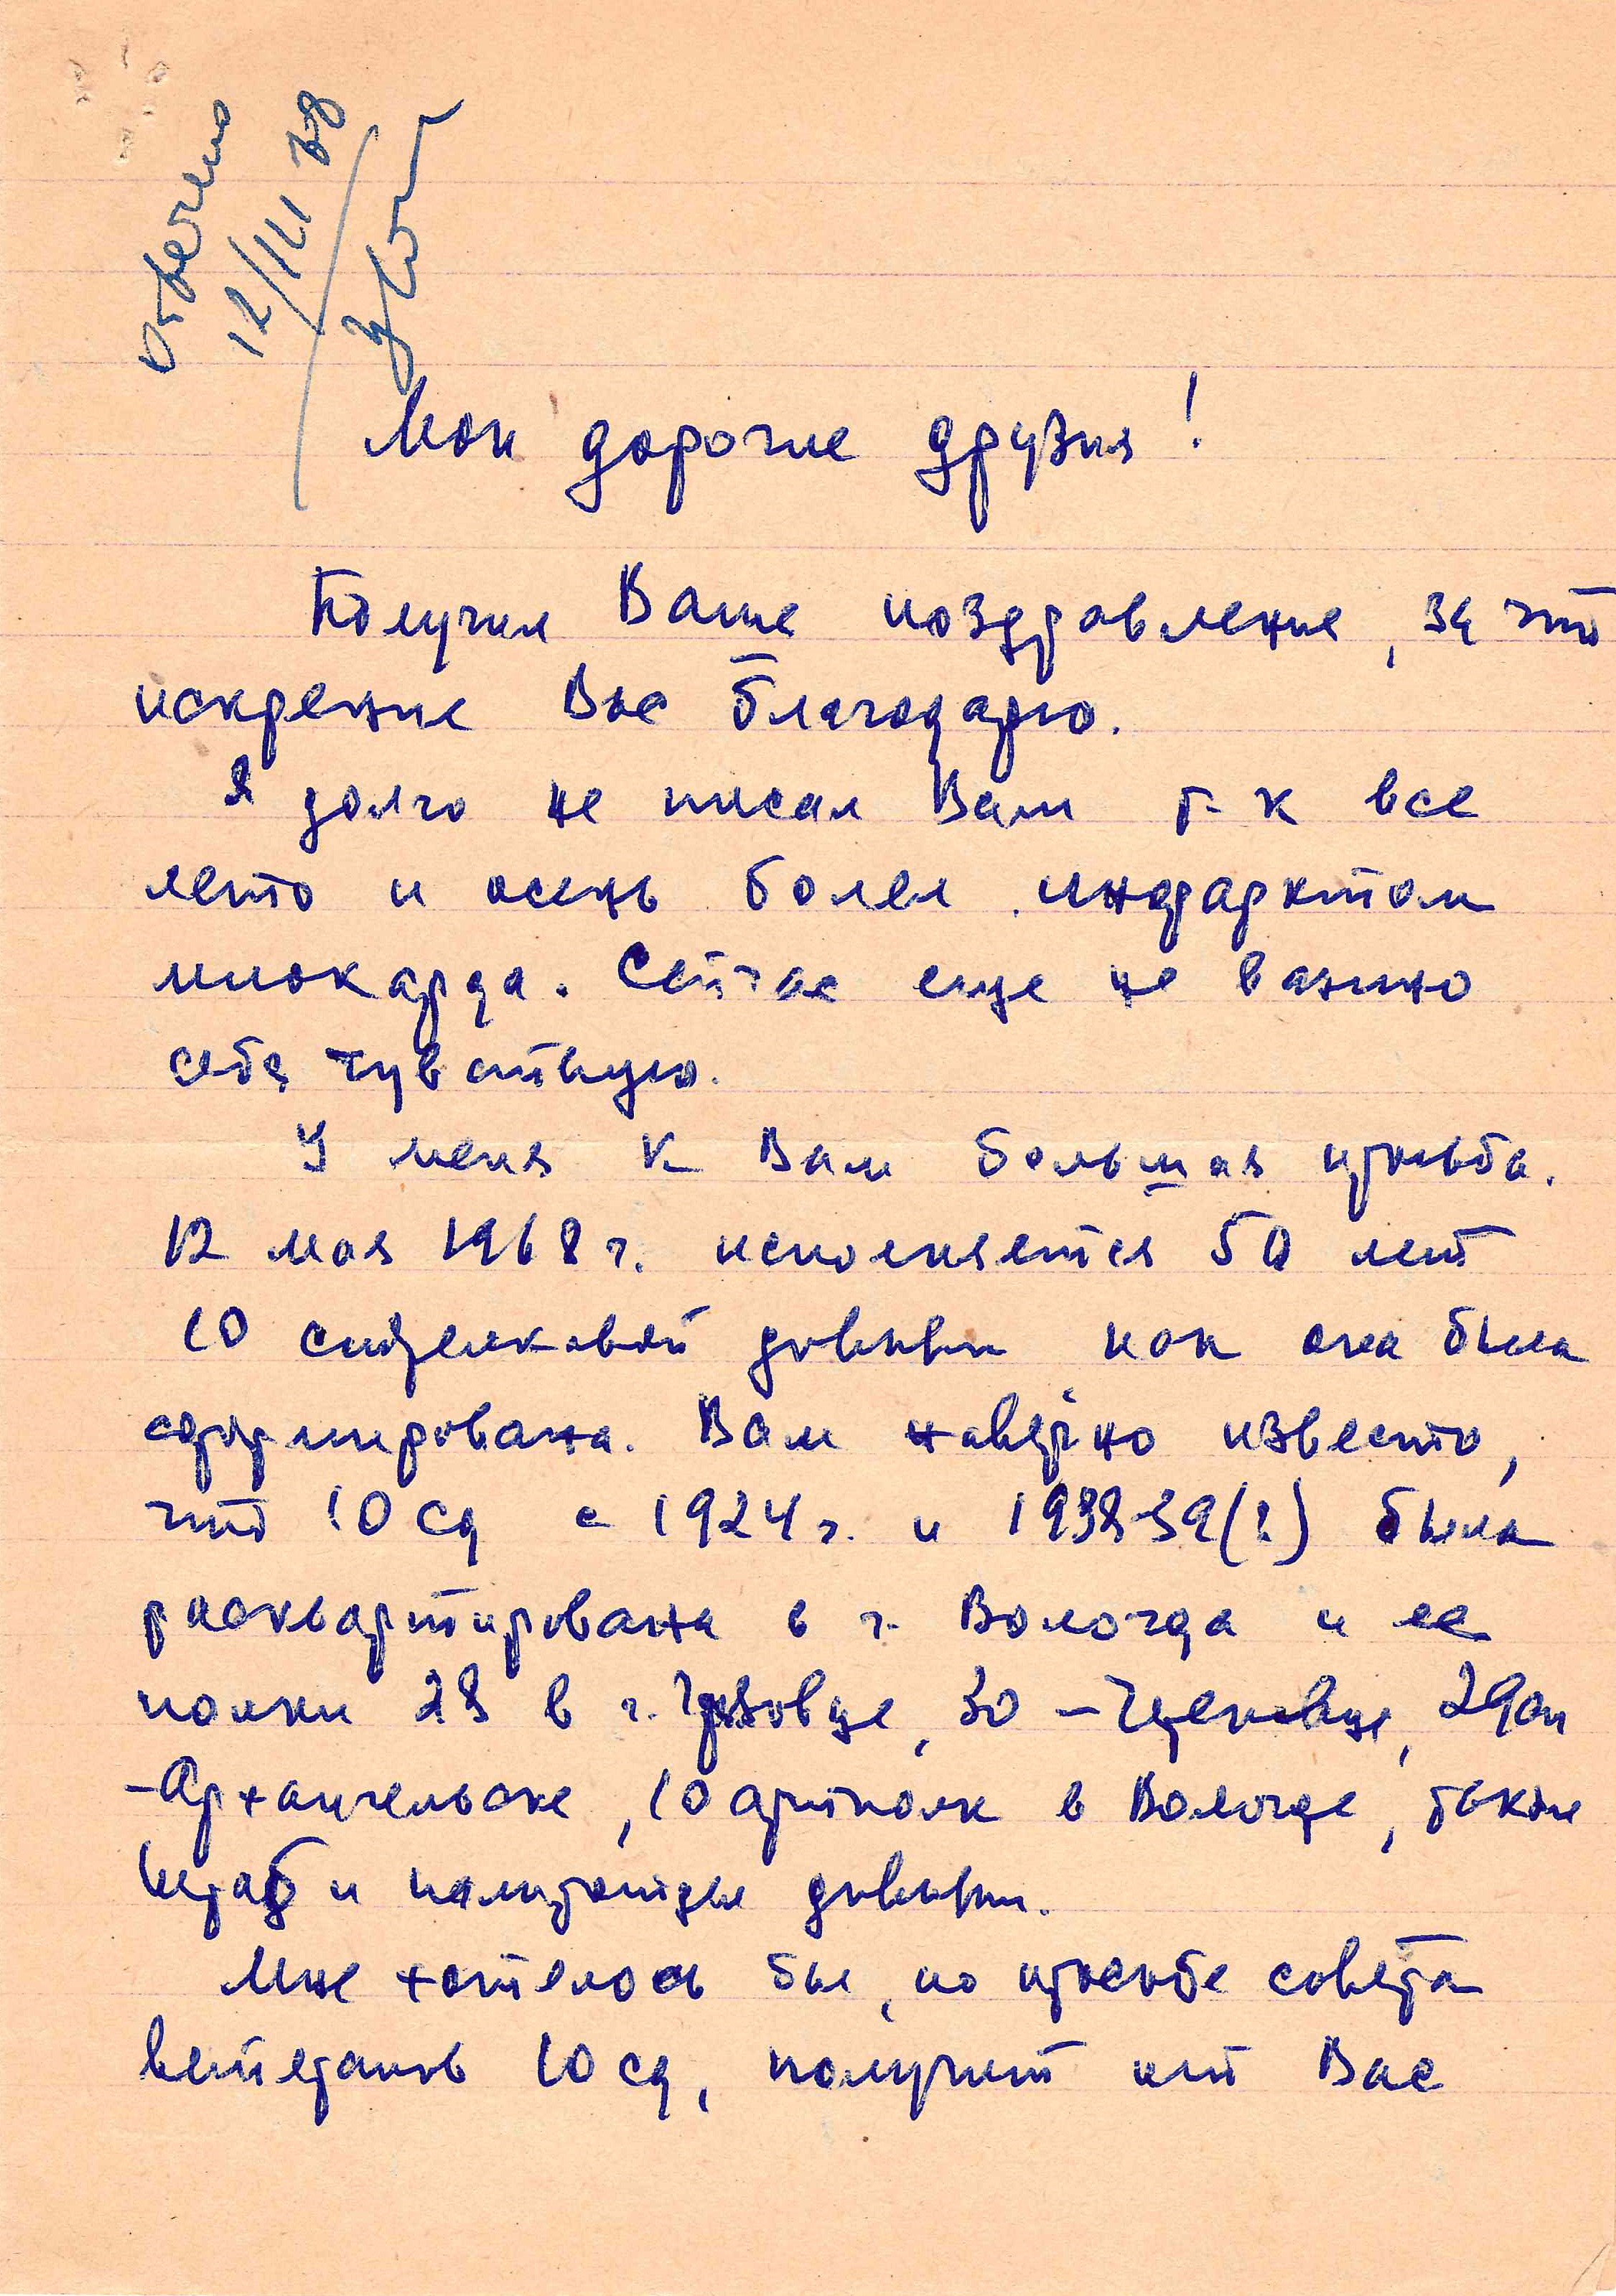 Отвечено
12/III 68
Мои дорогие друзья!
Получил Ваше поздравление, за что
искренне Вас благодарю.
Я долго не писал Вам т. к все
лето и осень болел инфарктом
миокарда. Сейчас еще не важно
себя чувствую.
У меня к Вам большая просьба.
12 мая 1968 г. исполняется 50 лет
10 стрелковой дивизии как она была
сформирована. Вам наверно известно,
что 10 сд с 1924 г. и 1938-39(?) была
расквартирована в г. Вологда и ее
полки 28 в г. Грязовце, 30 – Череповце, 29 сп
– Архангельске, 10 артполк в Вологде, также
штаб и политотдел дивизии.
Мне хотелось бы, по просьбе совета
ветеранов 10 сд, получить от Вас